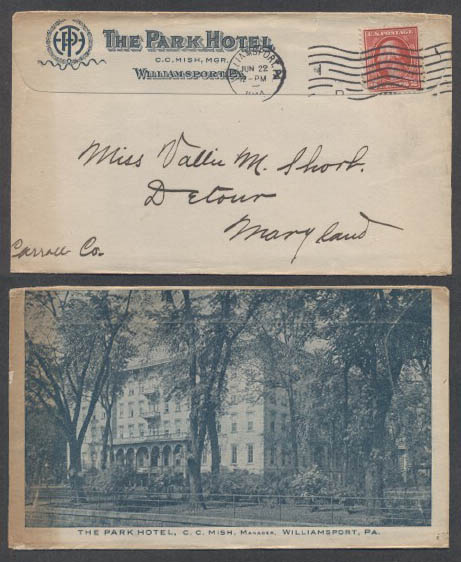 THE PARK HOTEL
C. C. MISH, MGR.
WILLIAMSPORT, PA.
JUN 22
PM
U.S. POSTAGE
Miss Vallie M. Shorb.
Detour
Maryland
Carroll Co.
THE PARK HOTEL, C. C. MISH, MANAGER, WILLIAMSPORT, PA.